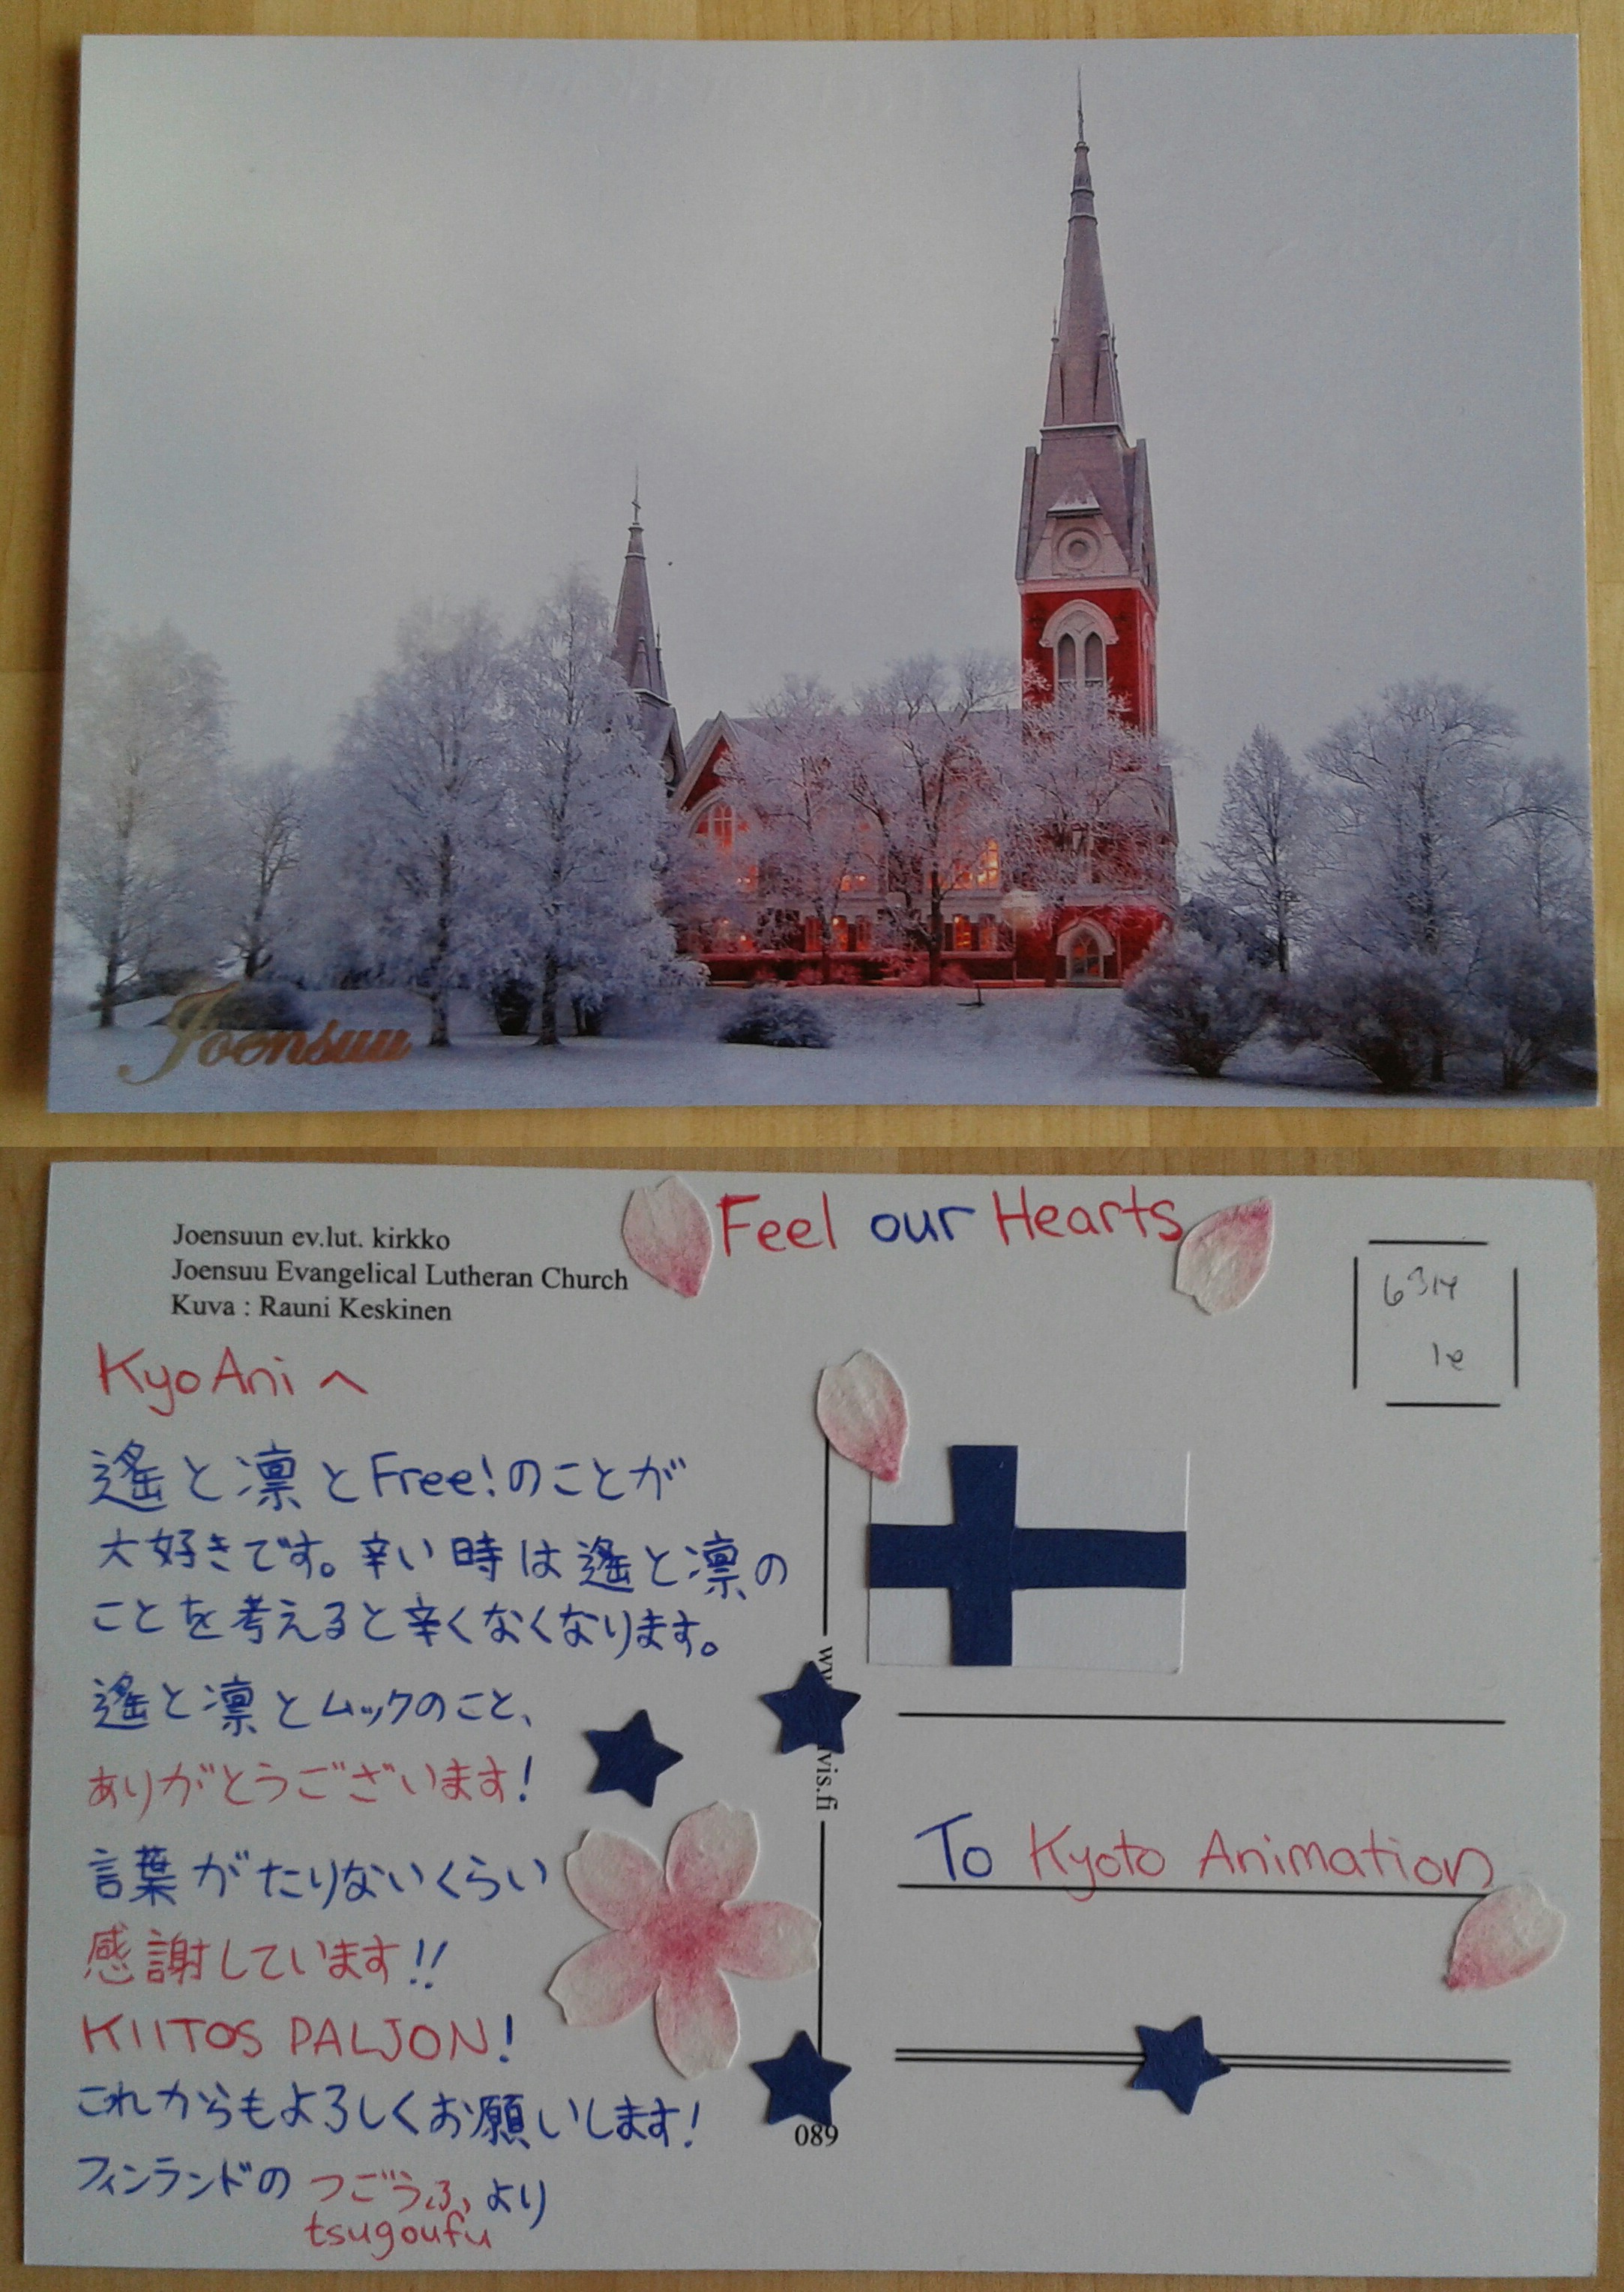 Joensuu
Feel our Hearts
Joensuun ev.lut. kirkko
Joensuu Evangelical Lutheran Church
Kuva : Rauni Keskinen
6314
1e
KyoAniへ
遙と凛とFree!のことが
大好きです。辛い時は遙と凛の
ことを考えると辛くなくなります。
遙と凛とムックのこと、
ありがとうございます!
言葉がたりないくらい
感謝しています!!
KIITOS PALJON!
これからもよろしくお願いします!
フィンランドの つごうふ より
tsugoufu
vis.fi
089
To Kyoto Animation